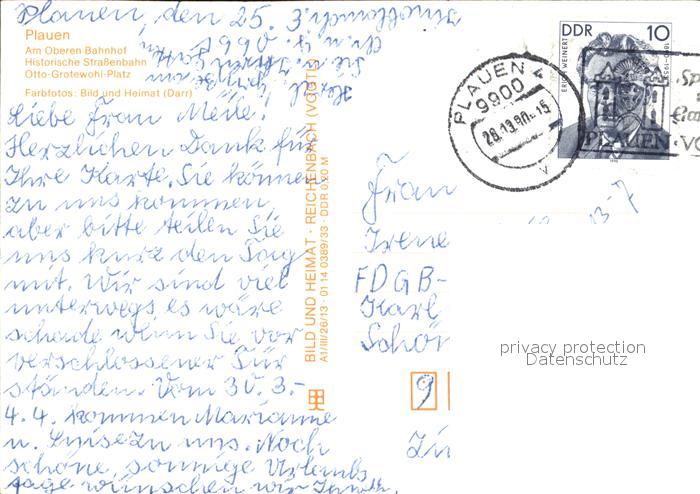 Plauen, den 25. 3.
1990.
Plauen
Am Oberen Bahnhof
Historische Straßenbahn
Otto-Grotewohl-Platz
Farbfotos: Bild und Heimat (Darr)
Liebe Frau Meile!
Herzlichen Dank für
Ihre Karte. Sie können
zu uns kommen,
aber bitte teilen Sie
uns kurz den Tag
mit. Wir sind viel
unterwegs, es wäre
schade wenn Sie vor
verschlossener Tür
ständen. Vom 30. 3.-
4. 4. kommen Marianne
u. zu uns. Noch
schöne, sonnige Urlaubs
tage wünschen wir Ihnen.
BILD UND HEIMAT · REICHENBACH (VOGTL)
A1/III/26/13 · 01 14 0389/33 · DDR 0,20 M
DDR 10
ERICH WEINERT
1890-1953
1990
PLAUEN 4
9900
PLAUEN · VO
Frau
Irene
FDGB-
Karl
Schön
9
privacy protection
Datenschutz